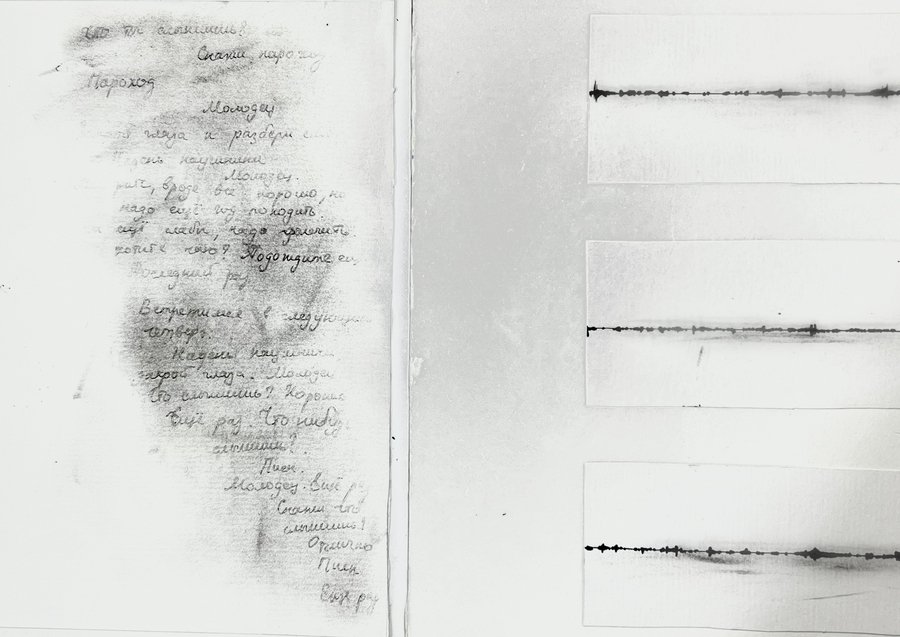 Что ты слышишь?
Скажи пароход
Пароход
Молодец
глаза и разбери
наушники
Молодец.
вроде всё хорошо, но
надо ещё год походить.
ещё слабы, надо
хотите чаю? Подождите
Последний раз
Встретимся в следующий
четверг.
Надень наушники
Закрой глаза. Молодец
Что слышишь? Хорошо
Ещё раз. Что нибудь
слышишь?
Писк.
Молодец. Ещё раз
Скажи что
слышишь?
Отлично
Писк
Ещё раз